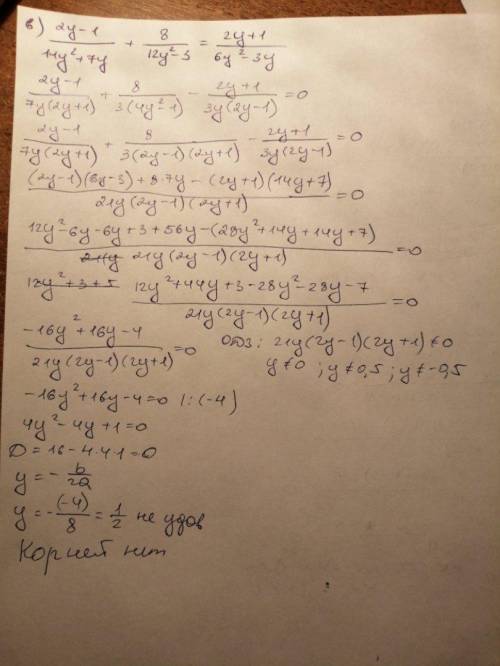 в) (2y-1)/(14y²+7y) + 8/(12y²-3) = (2y+1)/(6y²-3y)
(2y-1)/(7y(2y+1)) + 8/(3(4y²-1)) - (2y+1)/(3y(2y-1)) = 0
(2y-1)/(7y(2y+1)) + 8/(3(2y-1)(2y+1)) - (2y+1)/(3y(2y-1)) = 0
((2y-1)(6y-3)+8·7y-(2y+1)(14y+7))/(21y(2y-1)(2y+1)) = 0
(12y²-6y-6y+3+56y-(28y²+14y+14y+7))/(21y(2y-1)(2y+1)) = 0
12y²+3+5 (12y²+44y+3-28y²-28y-7)/(21y(2y-1)(2y+1)) = 0
(-16y²+16y-4)/(21y(2y-1)(2y+1)) = 0 ОДЗ: 21y(2y-1)(2y+1)≠0
y≠0; y≠0,5; y≠-0,5
-16y²+16y-4=0 |:(-4)
4y²-4y+1=0
D=16-4·4·1=0
y=-b/2a
y=-(-4)/8=1/2 не удов
Корней нет